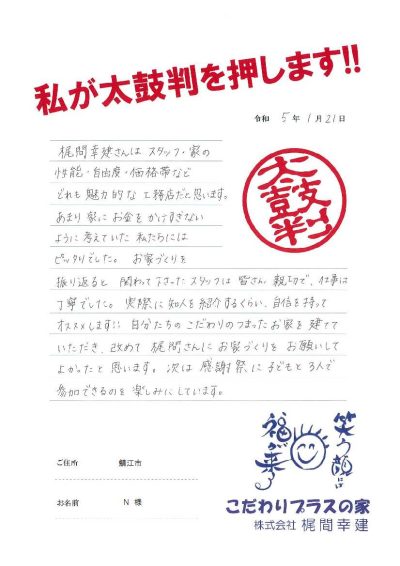 私が太鼓判を押します!!
令和 5年 1月21日
梶間幸建さんは スタッフ・家の
性能・自由度・価格帯など
どれも魅力的な工務店だと思います。
あまり家にお金をかけすぎない
ように考えていた私たちには
ピッタリでした。 お家づくりを
振り返ると 関わって下さったスタッフは 皆さん 親切で、仕事は
丁寧でした。 実際に知人を紹介するくらい、自信を持って
オススメします!! 自分たちの こだわりのつまったお家を 建てて
いただき、改めて 梶間さんに お家づくりを お願いして
よかったと 思います。 次は 感謝祭に 子どもと 3人で
参加できるのを 楽しみにしています。
太鼓判
笑う顔には
福が来る
ご住所 鯖江市
お名前 N 様
こだわりプラスの家
株式会社 梶間幸建